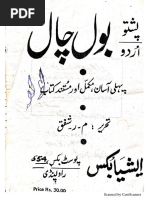 پشتو
اردو
بول چال
پہلی آسان مکمل اور مستند کتاب
تحریر : م۔ر۔شفق
ایشیا بکس
پوسٹ بکس
راولپنڈی
Price Rs. 30.00
Scanned by CamScanner